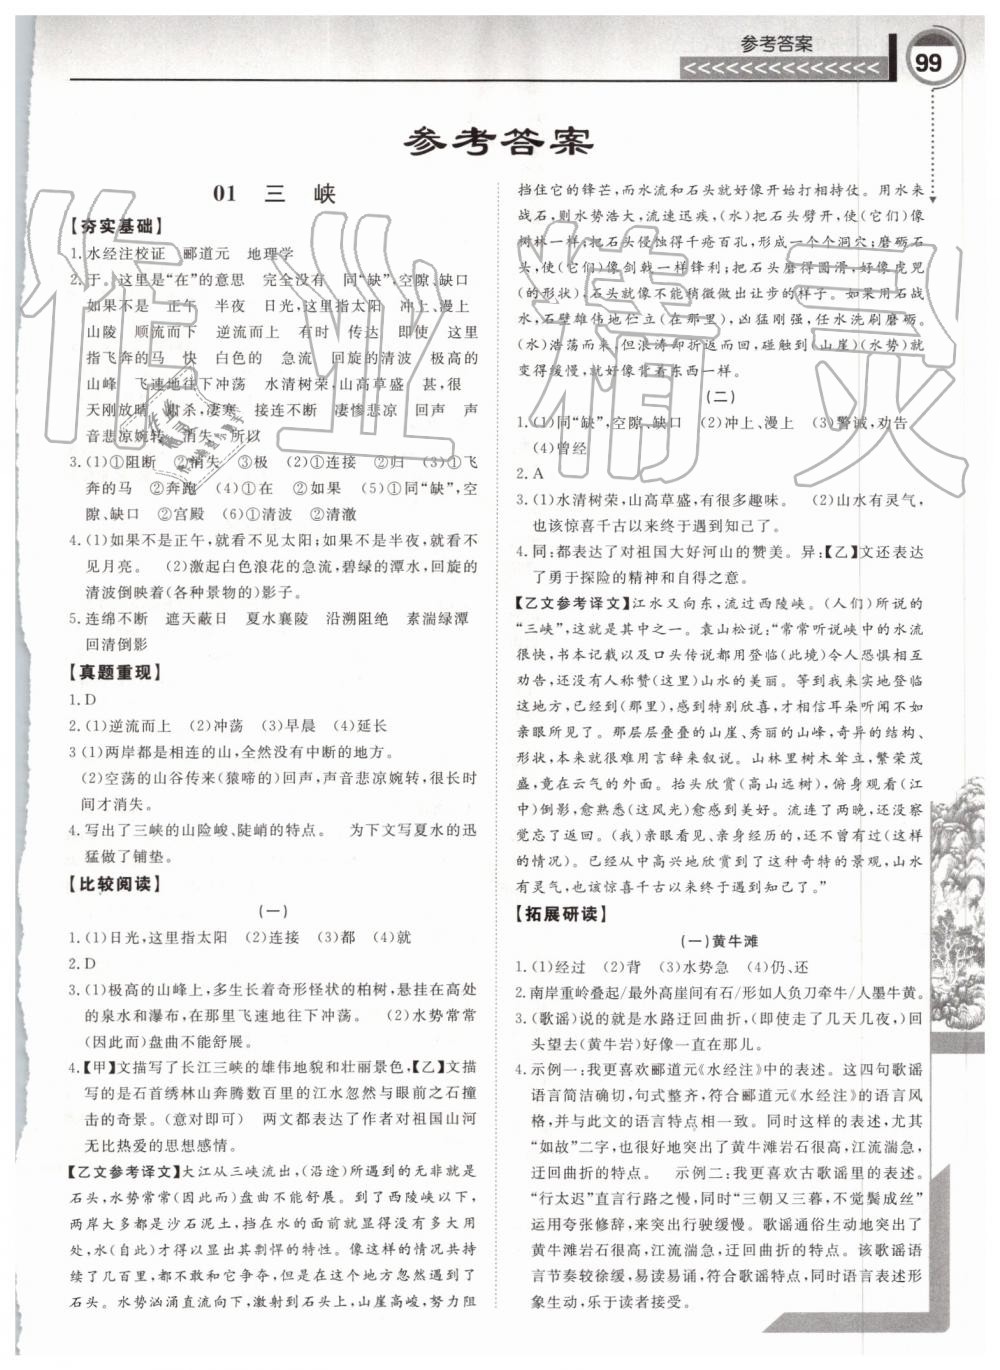 参考答案
<<<<<<<<<<<<<<
99
参考答案
01 三 峡
【夯实基础】
1.水经注校证 郦道元 地理学
2.于。这里是“在”的意思 完全没有 同“缺”,空隙、缺口
如果不是 正午 半夜 日光,这里指太阳 冲上、漫上
山陵 顺流而下 逆流而上 有时 传达 即使 这里
指飞奔的马 快 白色的 急流 回旋的清波 极高的
山峰 飞速地往下冲荡 水清树荣,山高草盛 甚,很
天刚放晴 肃杀,凄寒 接连不断 凄惨悲凉 回声 声
音悲凉婉转 消失 所以
3.(1)①阻断 ②消失 ③极 (2)①连接 ②归 (3)①飞
奔的马 ②奔跑 (4)①在 ②如果 (5)①同“缺”,空
隙、缺口 ②宫殿 (6)①清波 ②清澈
4.(1)如果不是正午,就看不见太阳;如果不是半夜,就看不
见月亮。 (2)激起白色浪花的急流,碧绿的潭水,回旋的
清波倒映着(各种景物的)影子。
5.连绵不断 遮天蔽日 夏水襄陵 沿溯阻绝 素湍绿潭
回清倒影
【真题重现】
1.D
2.(1)逆流而上 (2)冲荡 (3)早晨 (4)延长
3(1)两岸都是相连的山,全然没有中断的地方。
(2)空荡的山谷传来(猿啼的)回声,声音悲凉婉转,很长时
间才消失。
4.写出了三峡的山险峻、陡峭的特点。 为下文写夏水的迅
猛做了铺垫。
【比较阅读】
(一)
1.(1)日光,这里指太阳 (2)连接 (3)都 (4)就
2.D
3.(1)极高的山峰上,多生长着奇形怪状的柏树,悬挂在高处
的泉水和瀑布,在那里飞速地往下冲荡。 (2)水势常常
(因此而)盘曲不能舒展。
4.【甲】文描写了长江三峡的雄伟地貌和壮丽景色,【乙】文描
写的是石首绣林山奔腾数百里的江水忽然与眼前之石撞
击的奇景。(意对即可) 两文都表达了作者对祖国山河
无比热爱的思想感情。
【乙文参考译文】大江从三峡流出,(沿途)所遇到的无非就是
石头,水势常常(因此而)盘曲不能舒展。到了西陵峡以下,
两岸大多都是沙石泥土,挡在水的面前就显得没有多大用
处,水(自此)才得以显出其剽悍的特性。像这样的情况共持续
了几百里,都不和它争夺,但是在这个地方忽然遇到
石头。水势汹涌直流向下,山崖高峻,(它们)努力要阻
挡住它的锋芒,而水流和石头就好像开始打相持仗。用水来
战石,则水势浩大,流速迅疾,(水)把石头劈开,使(它们)像
树林一样;把石头侵蚀得千疮百孔,形成一个个洞穴;磨砺石
头,使(它们)像剑戟一样锋利;把石头磨得圆滑,好像虎兕
(的形状),石头就像不能稍微做出让步的样子。如果用石战
水,石壁雄伟地伫立(在那里),凶猛刚强,任水洗刷磨砺。
(水)浩荡而来,但浪涛却折返而回,碰触到(山崖)(水势)就
变得缓慢,就好像背着东西一样。
(二)
1.(1)同“缺”,空隙、缺口 (2)冲上、漫上 (3)警诫,劝告
(4)曾经
2.A
3.(1)水清树荣,山高草盛,有很多趣味。 (2)山水有灵气,
也该惊喜千古以来终于遇到知己了。
4.同:都表达了对祖国大好河山的赞美。异:【乙】文还表达
了勇于探险的精神和自得之意。
【乙文参考译文】江水又向东,流过西陵峡。(人们)所说的
“三峡”,这就是其中之一。袁山松说:“常常听说峡中的水流
很快,书本记载以及口头传说都用登临(此境)令人恐惧相互
劝告,还没有人称赞(这里)山水的美丽。等到我来实地登临
这地方,已经来到,感到特别欣喜,才相信耳朵听闻不如
亲眼所见了。那层层叠叠的山崖、秀丽的山峰,奇异的结构、
形状,本来就很难用言辞来叙说。山林里树木耸立、繁荣茂
盛,竟在云气的外面。抬头欣赏(高山远树),俯视(江
中)倒影,愈熟悉(这风光)愈感到美好。流连了两晚,还没察
觉忘了返回。(我)亲眼看见、亲身经历的,还没有过(这样
的情况)。已经从中高兴地欣赏到了这种奇特的景观,山水
有灵气,也该惊喜千古以来终于遇到知己了。”
【拓展研读】
(一)黄牛滩
1.(1)经过 (2)背 (3)水势急 (4)仍、还
2.南岸重岭叠起/最外高崖间有石/形如人负刀牵牛/人墨牛黄。
3.(歌谣)说的就是水路迂回曲折,(即使走了几天几夜,)回
头望去(黄牛岩)好像一直在那儿。
4.示例一:我更喜欢郦道元《水经注》中的表述。这四句歌谣
语言简洁确切,句式整齐,符合郦道元《水经注》的语言风
格,并与此文的语言特点相一致。同时这样的表述,尤其
“如故”二字,也很好地突出了黄牛滩岩石很高,江流湍急,
迂回曲折的特点。 示例二:我更喜欢古歌谣里的表述。
“行太迟”直言行路之慢,同时“三朝又三暮,不觉鬓成丝”
运用夸张修辞,来突出行驶缓慢。歌谣通俗生动地突出了
黄牛滩岩石很高,江流湍急、迂回曲折的特点。该首歌谣
语言节奏较徐缓,易读易诵,符合歌谣特点,同时语言表述形
象生动,乐于读者接受。
作业精灵